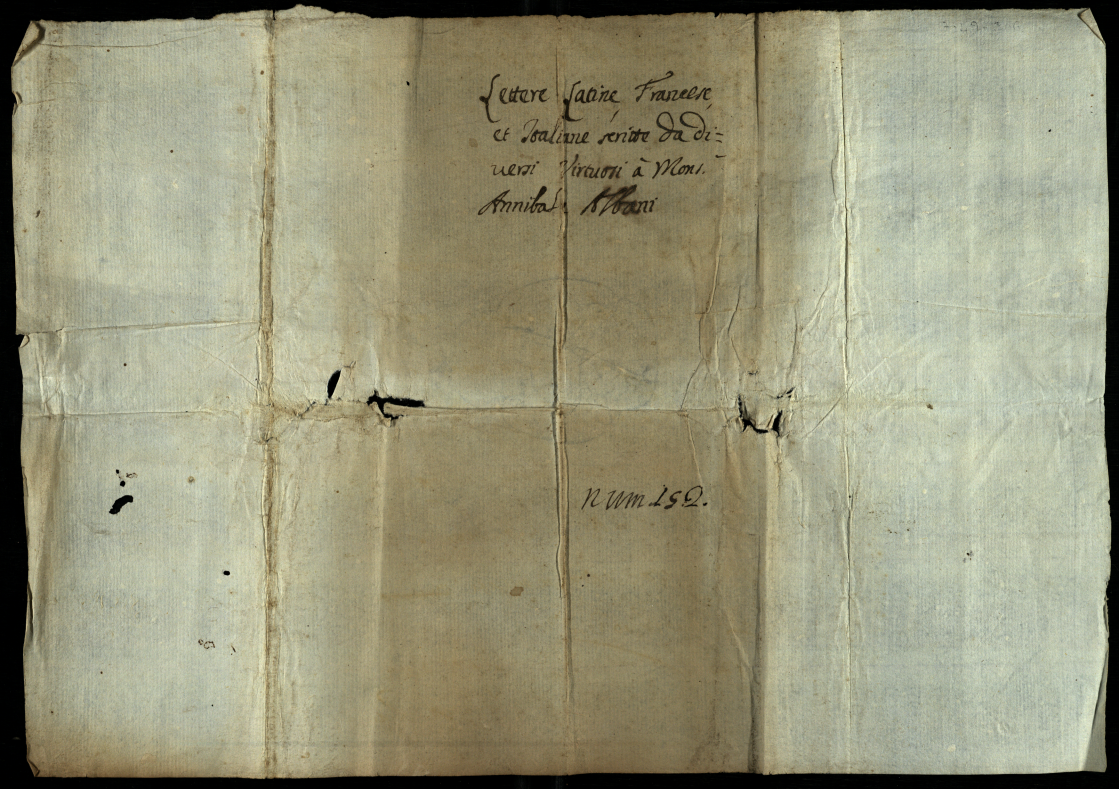 Lettere Latine, Francese,
et Italiane scritte da di=
uersi Virtuosi à Mons.
Annibal Albani
Num. 152.